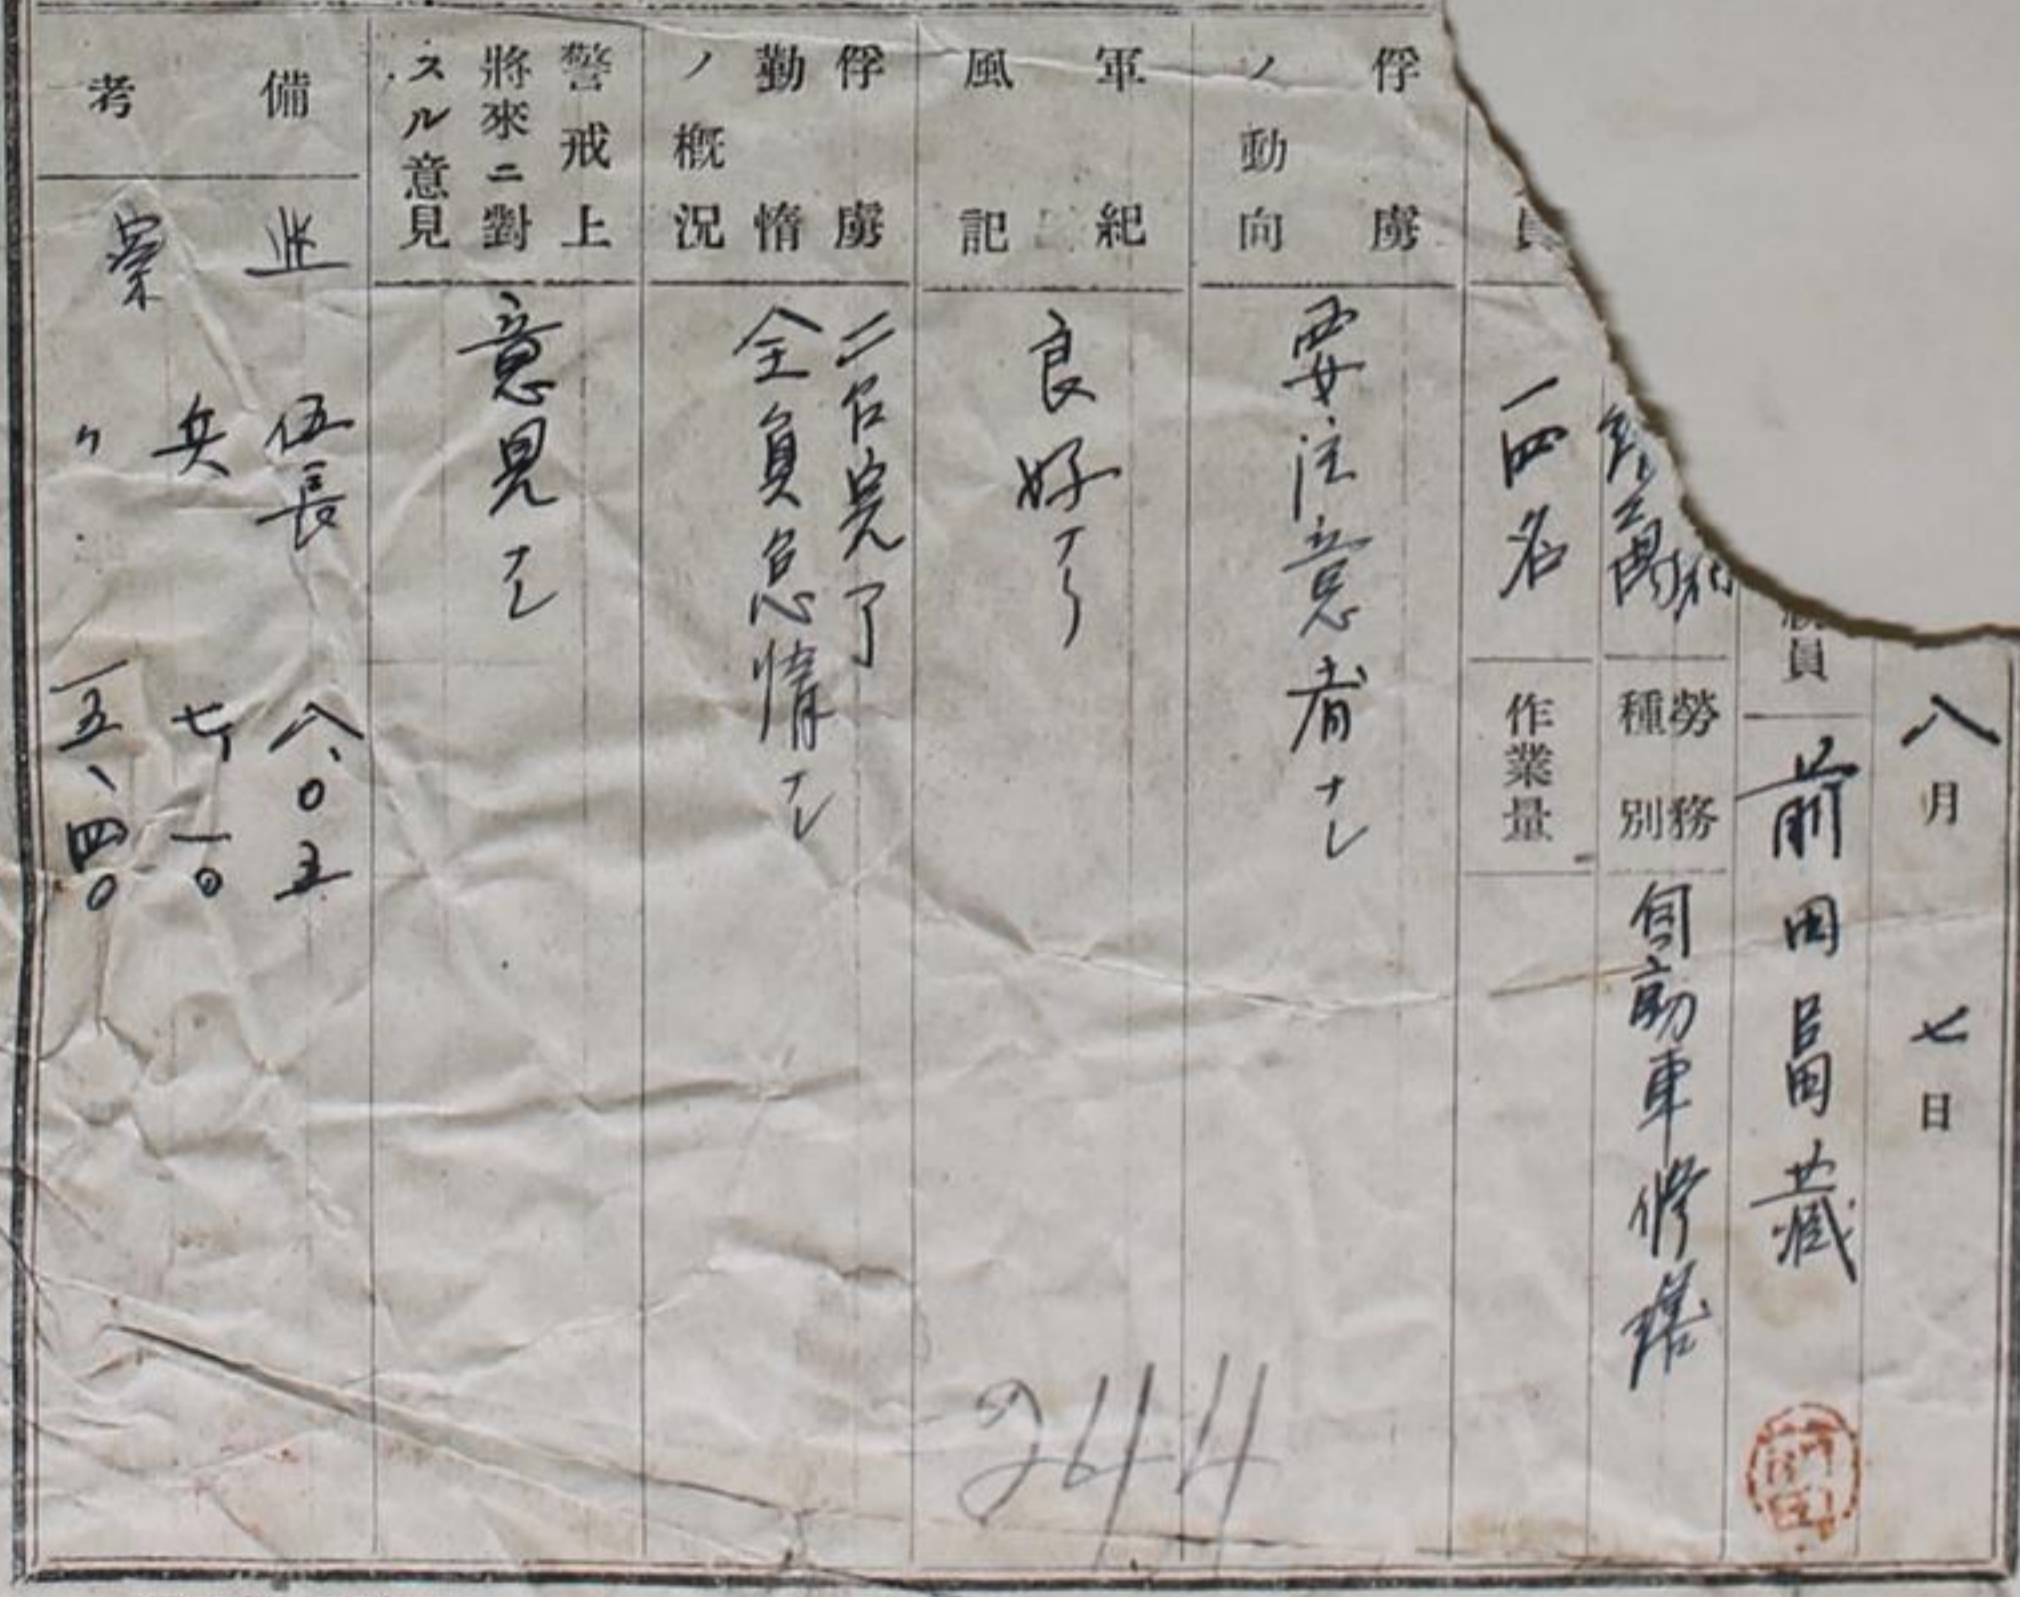 八月七日
員 前田昌蔵
労務種別 自動車修理
一四名 作業量
俘虜ノ動向 要注意者ナシ
軍紀風記 良好ナリ
俘虜勤惰ノ概況 二名完了
全員怠惰ナシ
警戒上將來ニ對スル意見 意見ナシ
備考
伍長 八、〇五
兵 七、一〇
〃 一五、四〇
244